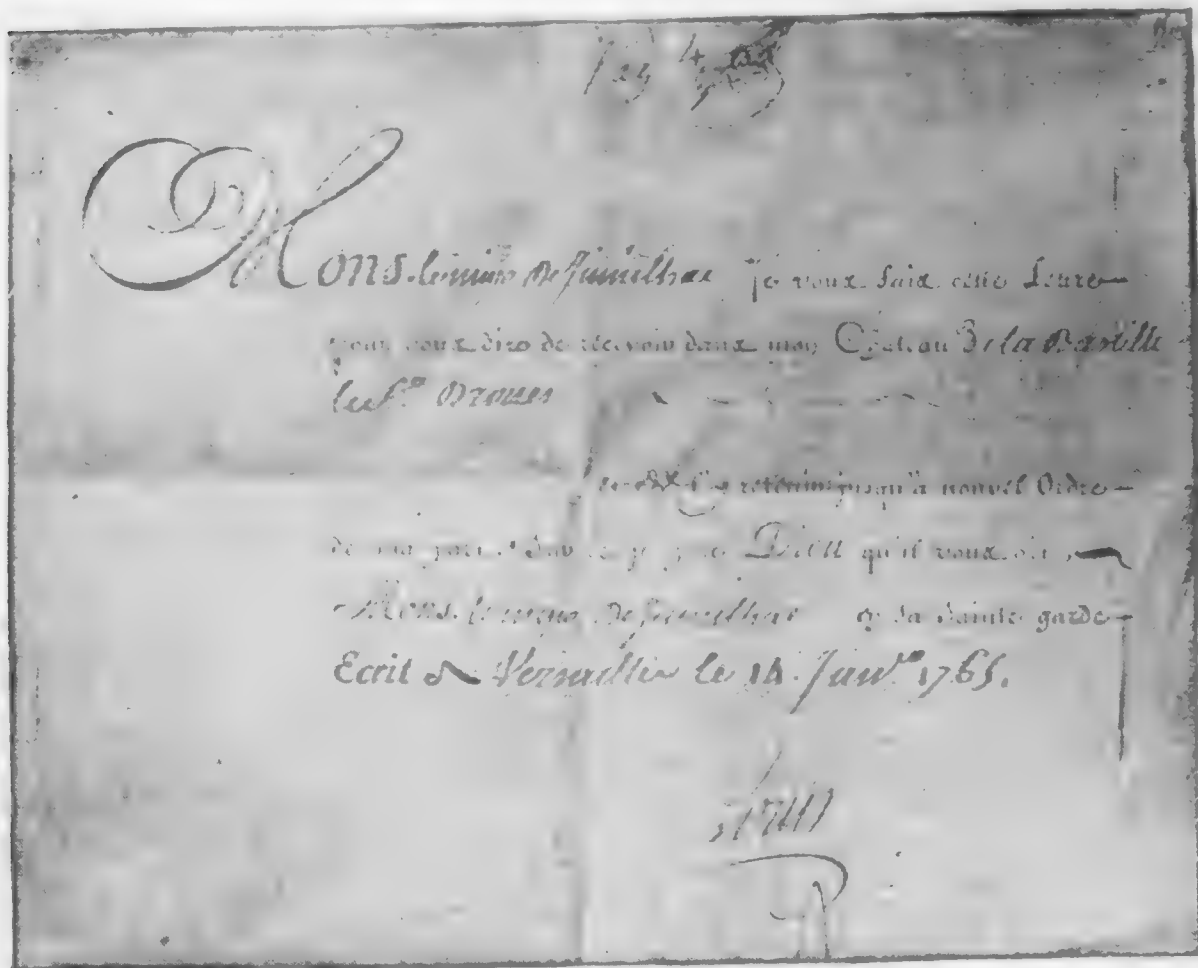 Mons. de Jumilhac Je vous fais cette Lettre
pour vous dire de recevoir dans mon Château de la Bastille
le Sr. Drouet
et l'y retenir jusqu'à nouvel Ordre
de ma part. Sur ce je prie Dieu qu'il vous ait,
Mons. de Jumilhac en sa sainte garde
Ecrit a Versailles le 14. Janv. 1765.
Louis